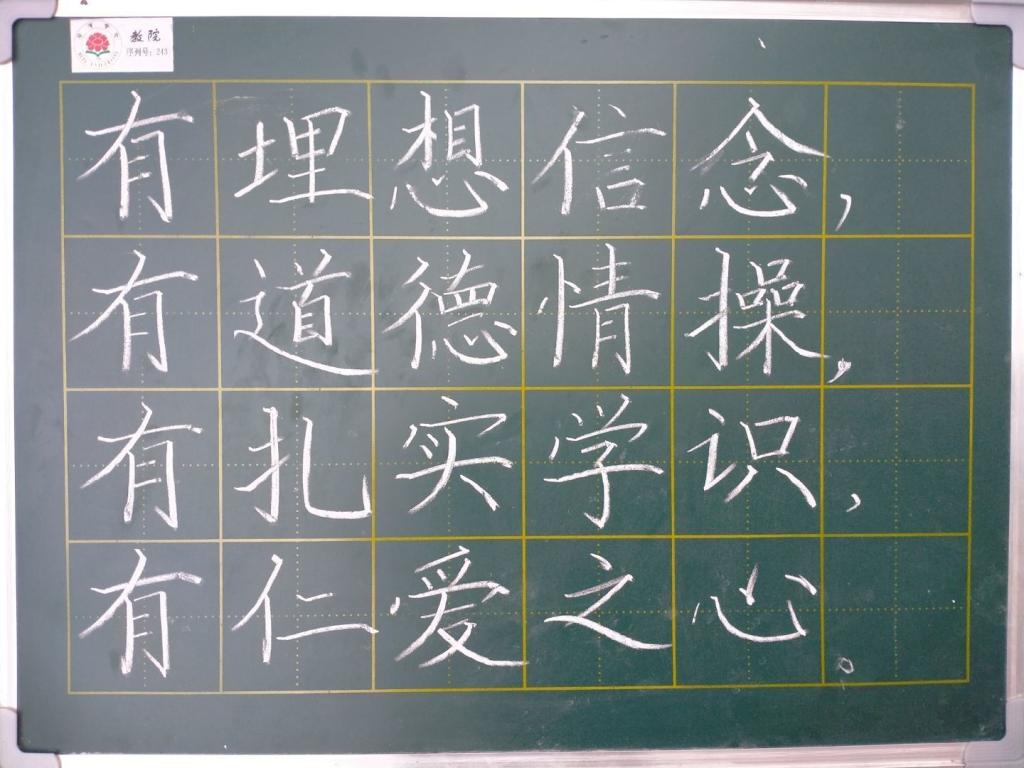 教院
序列号：243
有埋想信念，
有道德情操，
有扎实学识，
有仁爱之心。